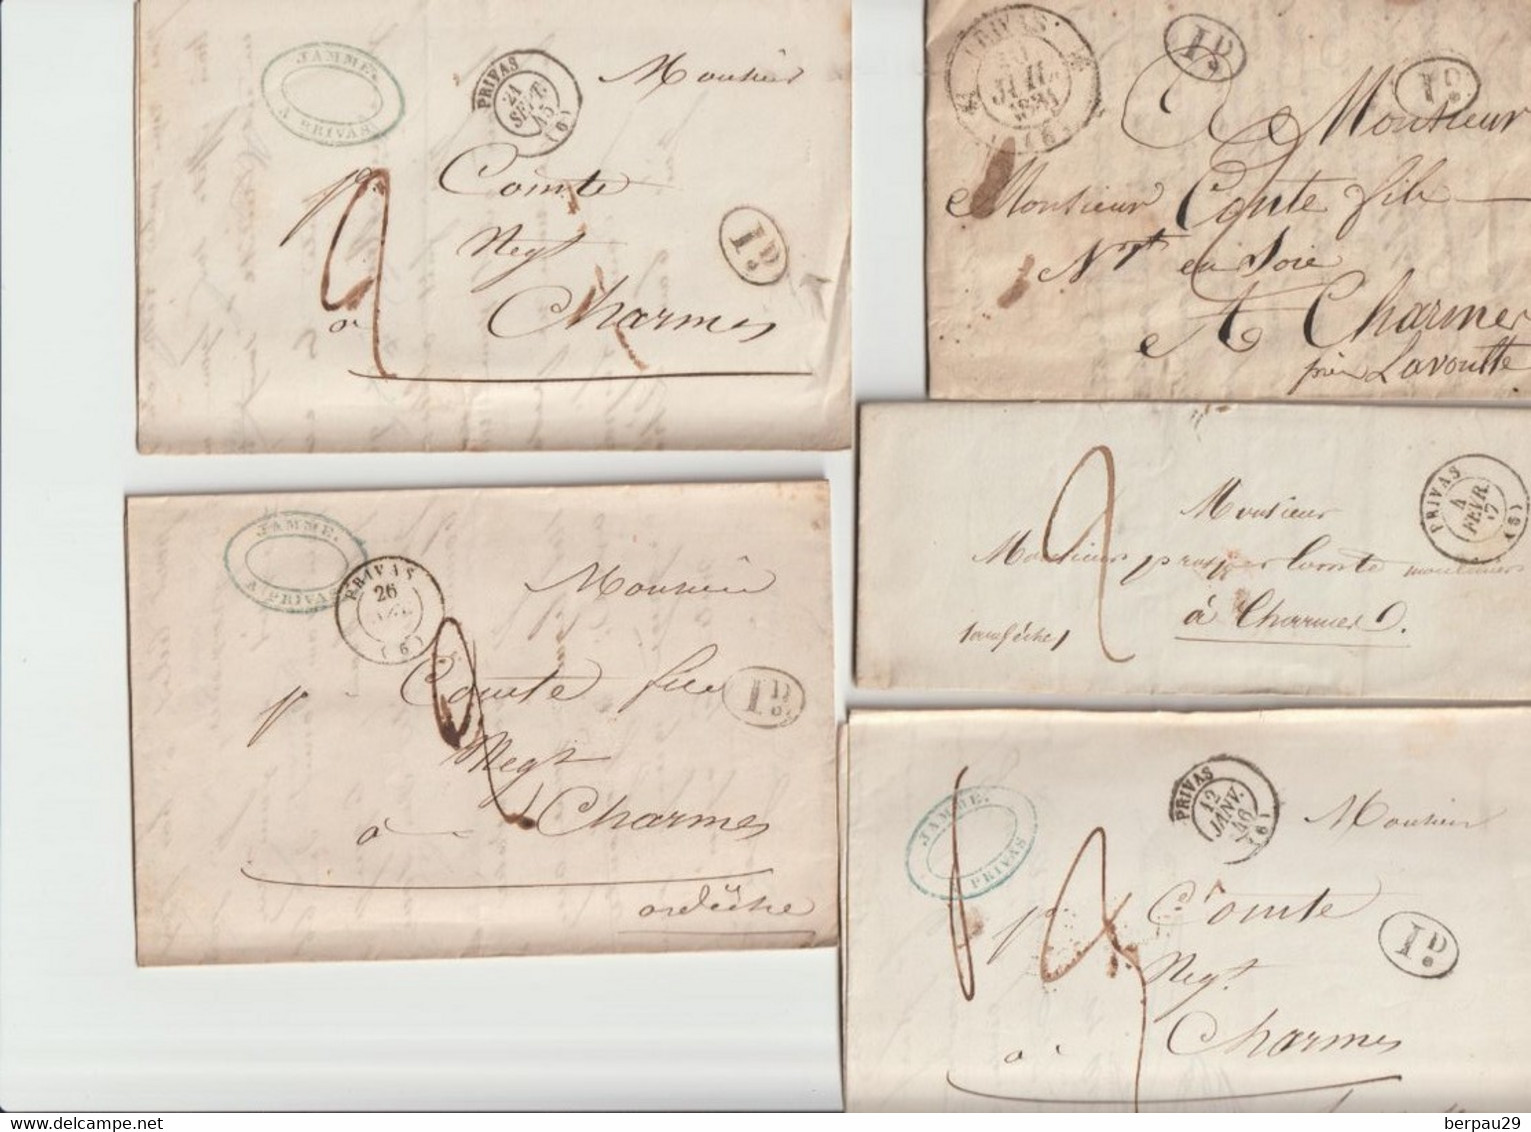 JAMME.
A PRIVAS
PRIVAS
21
SEPT.
45
(6)
Monsieur
Comte
Negt
1D
à
Charmes
PRIVAS
JUIL.
(6)
1D
1D
A Monsieur
Monsieur Comte fils
Nt en Soie
A Charmes
près Lavoulte
JAMME.
A PRIVAS
PRIVAS
26
(6)
Monsieur
p Comte fils
1D
Negt
à Charmes
ardèche
PRIVAS
4
FEVR.
47
(6)
Monsieur
Monsieur prosper Comte moulinier
à Charmes
JAMME.
A PRIVAS
PRIVAS
12
JANV.
46
(6)
Monsieur
Comte
1D
Negt.
à Charmes
berpau29